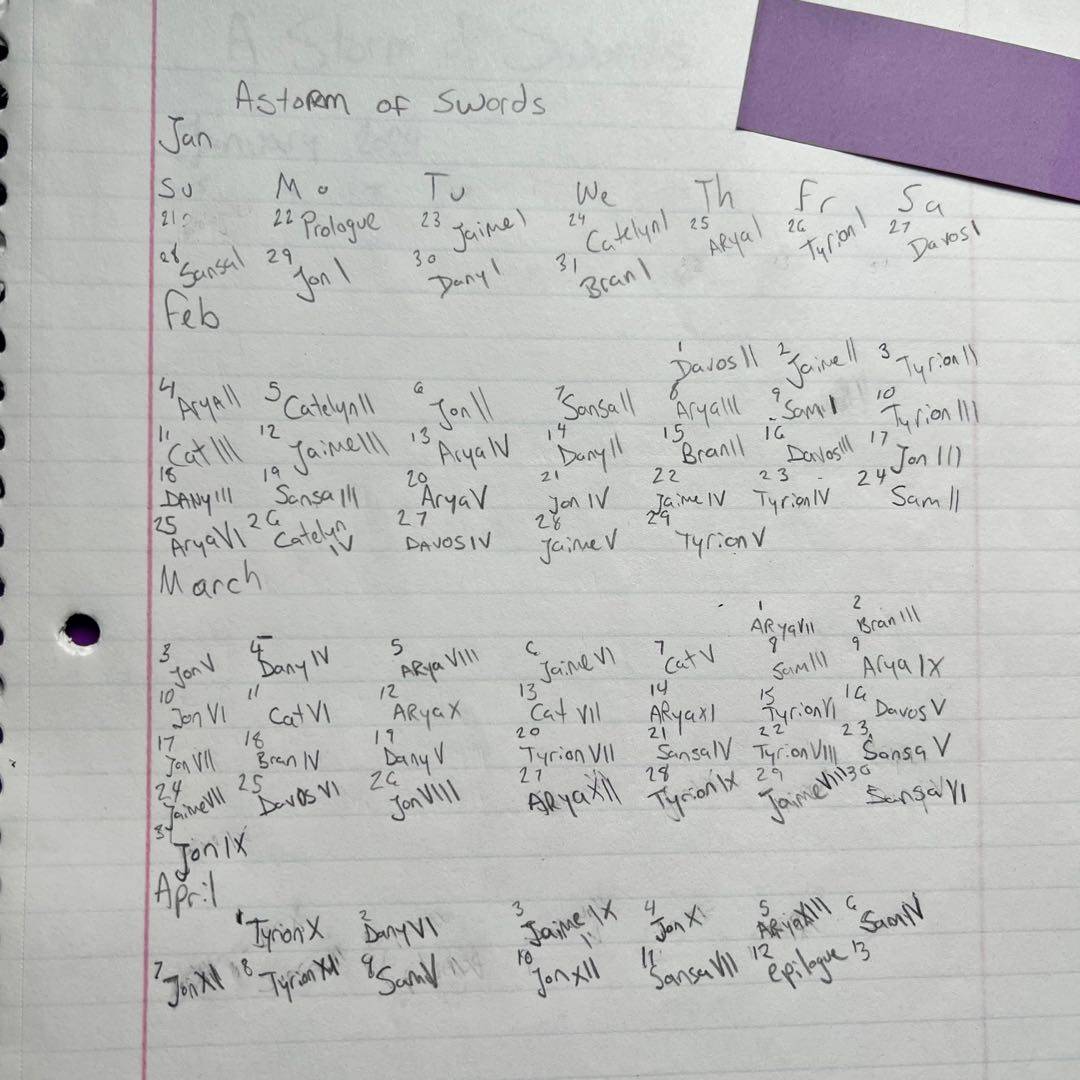 A Storm of Swords
Jan
Su Mo Tu We Th Fr Sa
21 22 Prologue 23 Jaime I 24 Catelyn I 25 Arya I 26 Tyrion I 27 Davos I
28 Sansa I 29 Jon I 30 Dany I 31 Bran I
Feb
1 Davos II 2 Jaime II 3 Tyrion II
4 Arya II 5 Catelyn II 6 Jon II 7 Sansa II 8 Arya III 9 Sam I 10 Tyrion III
11 Cat III 12 Jaime III 13 Arya IV 14 Dany II 15 Bran II 16 Davos III 17 Jon III
18 DANY III 19 Sansa III 20 Arya V 21 Jon IV 22 Jaime IV 23 Tyrion IV 24 Sam II
25 Arya VI 26 Catelyn IV 27 DAVOS IV 28 Jaime V 29 Tyrion V
March
1 ARya VII 2 Bran III
3 Jon V 4 Dany IV 5 ARya VIII 6 Jaime VI 7 Cat V 8 Sam III 9 Arya IX
10 Jon VI 11 Cat VI 12 ARya X 13 Cat VII 14 ARya XI 15 Tyrion VI 16 Davos V
17 Jon VII 18 Bran IV 19 Dany V 20 Tyrion VII 21 Sansa IV 22 Tyrion VIII 23 Sansa V
24 Jaime VII 25 Davos VI 26 Jon VIII 27 ARya XII 28 Tyrion IX 29 Jaime VIII 30 Sansa VI
31 Jon IX
April
1 Tyrion X 2 Dany VI 3 Jaime IX 4 Jon X 5 ARya XIII 6 Sam IV
7 Jon XI 8 Tyrion XI 9 Sam V 10 Jon XII 11 Sansa VII 12 epilogue 13